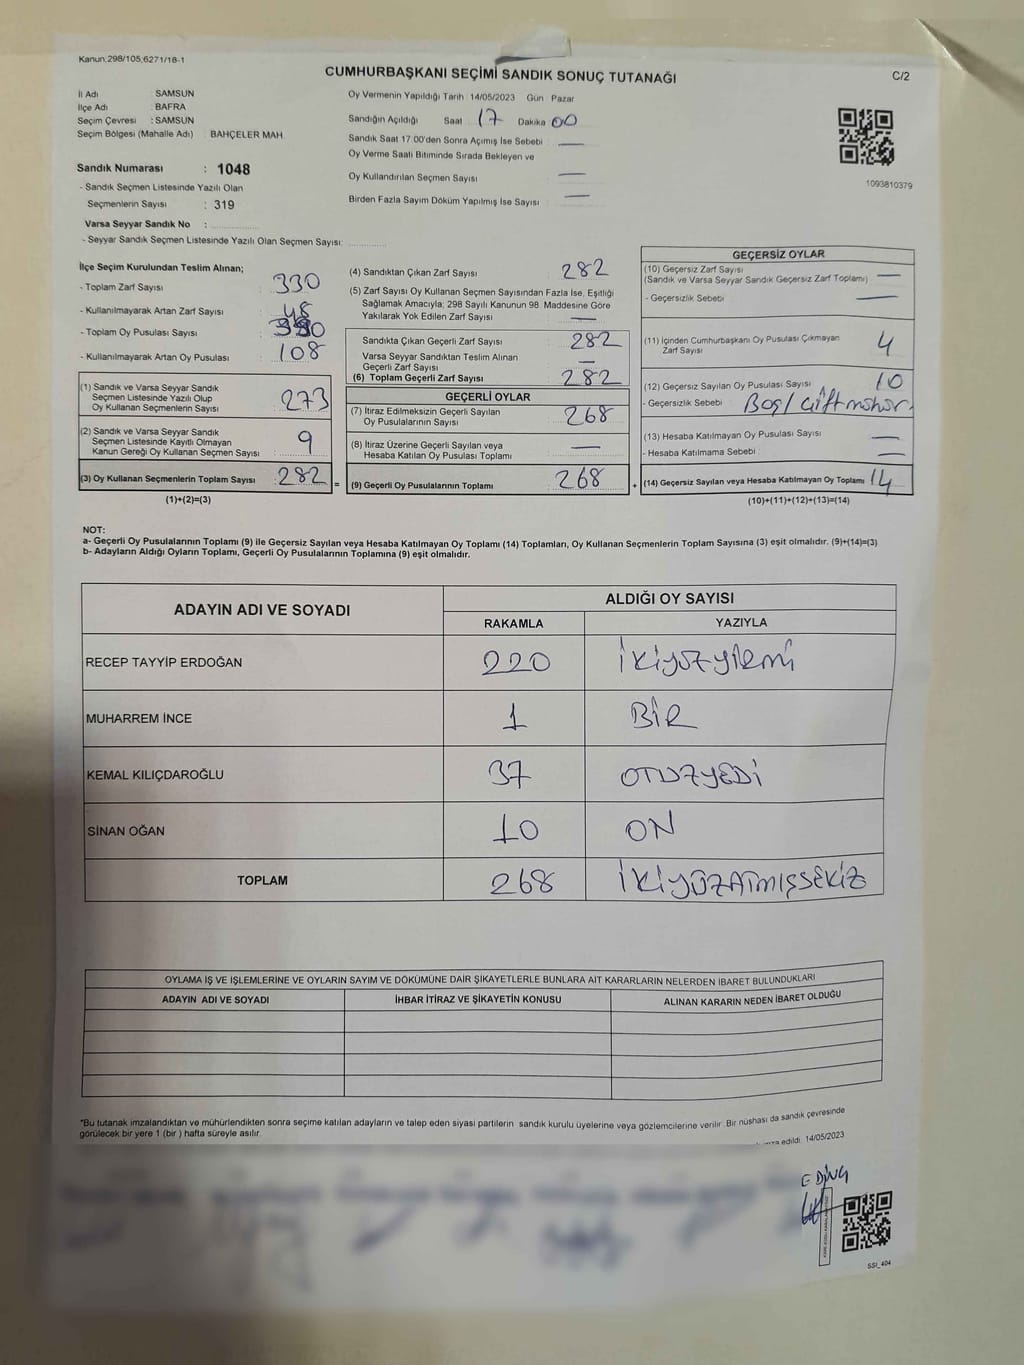 Kanun;298/105,6271/18-1
CUMHURBAŞKANI SEÇİMİ SANDIK SONUÇ TUTANAĞI
C/2
İl Adı : SAMSUN
İlçe Adı : BAFRA
Seçim Çevresi : SAMSUN
Seçim Bölgesi (Mahalle Adı) : BAHÇELER MAH.
Sandık Numarası : 1048
- Sandık Seçmen Listesinde Yazılı Olan
Seçmenlerin Sayısı : 319
Varsa Seyyar Sandık No :
- Seyyar Sandık Seçmen Listesinde Yazılı Olan Seçmen Sayısı:
Oy Vermenin Yapıldığı Tarih : 14/05/2023 Gün Pazar
Sandığın Açıldığı Saat 17 Dakika 00
Sandık Saat 17.00'den Sonra Açımış İse Sebebi —
Oy Verme Saati Bitiminde Sırada Bekleyen ve
Oy Kullandırılan Seçmen Sayısı —
Birden Fazla Sayım Döküm Yapılmış İse Sayısı —
1093810379
İlçe Seçim Kurulundan Teslim Alınan;
- Toplam Zarf Sayısı : 330
- Kullanılmayarak Artan Zarf Sayısı : 48
- Toplam Oy Pusulası Sayısı :
- Kullanılmayarak Artan Oy Pusulası : 108
(1) Sandık ve Varsa Seyyar Sandık
Seçmen Listesinde Yazılı Olup
Oy Kullanan Seçmenlerin Sayısı : 273
(2) Sandık ve Varsa Seyyar Sandık
Seçmen Listesinde Kayıtlı Olmayan
Kanun Gereği Oy Kullanan Seçmen Sayısı : 9
(3) Oy Kullanan Seçmenlerin Toplam Sayısı : 282 =
(1)+(2)=(3)
(4) Sandıktan Çıkan Zarf Sayısı 282
(5) Zarf Sayısı Oy Kullanan Seçmen Sayısından Fazla İse, Eşitliği
Sağlamak Amacıyla; 298 Sayılı Kanunun 98. Maddesine Göre
Yakılarak Yok Edilen Zarf Sayısı —
Sandıkta Çıkan Geçerli Zarf Sayısı 282
Varsa Seyyar Sandıktan Teslim Alınan
Geçerli Zarf Sayısı —
(6) Toplam Geçerli Zarf Sayısı 282
GEÇERLİ OYLAR
(7) İtiraz Edilmeksizin Geçerli Sayılan
Oy Pusulalarının Sayısı 268
(8) İtiraz Üzerine Geçerli Sayılan veya
Hesaba Katılan Oy Pusulası Toplamı —
(9) Geçerli Oy Pusulalarının Toplamı 268 +
GEÇERSİZ OYLAR
(10) Geçersiz Zarf Sayısı
(Sandık ve Varsa Seyyar Sandık Geçersiz Zarf Toplamı) —
- Geçersizlik Sebebi —
(11) İçinden Cumhurbaşkanı Oy Pusulası Çıkmayan
Zarf Sayısı 4
(12) Geçersiz Sayılan Oy Pusulası Sayısı 10
- Geçersizlik Sebebi Boş/çift mühür
(13) Hesaba Katılmayan Oy Pusulası Sayısı —
- Hesaba Katılmama Sebebi : —
(14) Geçersiz Sayılan veya Hesaba Katılmayan Oy Toplamı 14
(10)+(11)+(12)+(13)=(14)
NOT:
a- Geçerli Oy Pusulalarının Toplamı (9) ile Geçersiz Sayılan veya Hesaba Katılmayan Oy Toplamı (14) Toplamları, Oy Kullanan Seçmenlerin Toplam Sayısına (3) eşit olmalıdır. (9)+(14)=(3)
b- Adayların Aldığı Oyların Toplamı, Geçerli Oy Pusulalarının Toplamına (9) eşit olmalıdır.
ADAYIN ADI VE SOYADI ALDIĞI OY SAYISI
RAKAMLA YAZIYLA
RECEP TAYYİP ERDOĞAN 220 İKİYÜZYİRMİ
MUHARREM İNCE 1 BİR
KEMAL KILIÇDAROĞLU 37 OTUZYEDİ
SİNAN OĞAN 10 ON
TOPLAM 268 İKİYÜZATMIŞSEKİZ
OYLAMA İŞ VE İŞLEMLERİNE VE OYLARIN SAYIM VE DÖKÜMÜNE DAİR ŞİKAYETLERLE BUNLARA AİT KARARLARIN NELERDEN İBARET BULUNDUKLARI
ADAYIN ADI VE SOYADI İHBAR İTİRAZ VE ŞİKAYETİN KONUSU ALINAN KARARIN NEDEN İBARET OLDUĞU
*Bu tutanak imzalandıktan ve mühürlendikten sonra seçime katılan adayların ve talep eden siyasi partilerin sandık kurulu üyelerine veya gözlemcilerine verilir. Bir nüshası da sandık çevresinde
görülecek bir yere 1 (bir) hafta süreyle asılır.
edildi. 14/05/2023
E DİNÇ
SSI_404